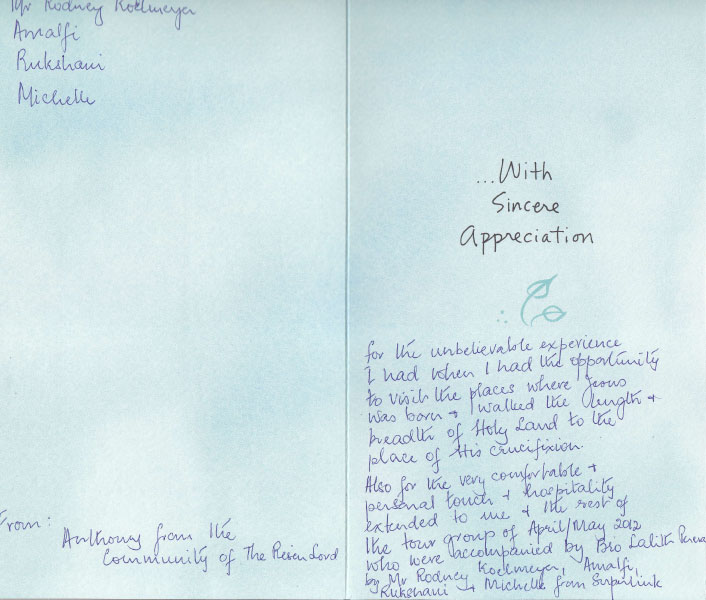 Mr Rodney Koelmeyer
Amalfi
Rukshani
Michelle
From:
Anthony from the
Community of The Risen Lord
...With
Sincere
Appreciation
for the unbelievable experience
I had when I had the opportunity
to visit the places where Jesus
was born + walked the length +
breadth of Holy Land to the
place of His Crucifixion.
Also for the very comfortable +
personal touch + hospitality
extended to me + the rest of
the tour group of April/May 2012
who were accompanied by Bro Lalith Perera
by Mr Rodney Koelmeyer, Amalfi,
Rukshani + Michelle from Superlink